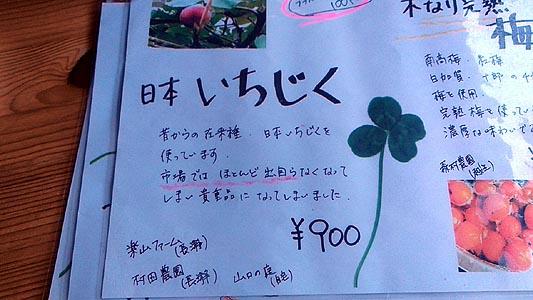 100%
木なり完熟
梅
日本いちじく
昔からの在来種、日本いちじくを
使っています.
市場では ほとんど出回らなくなって
しまい 貴重品に なってしまいました.
¥900
楽山ファーム(長瀞)
村田農園(長瀞) 山口の庭
南高梅、紅梅
白加賀、十郎の
梅を使用
完熟梅を使ってい
濃厚な味わいで
森村農園(越生)